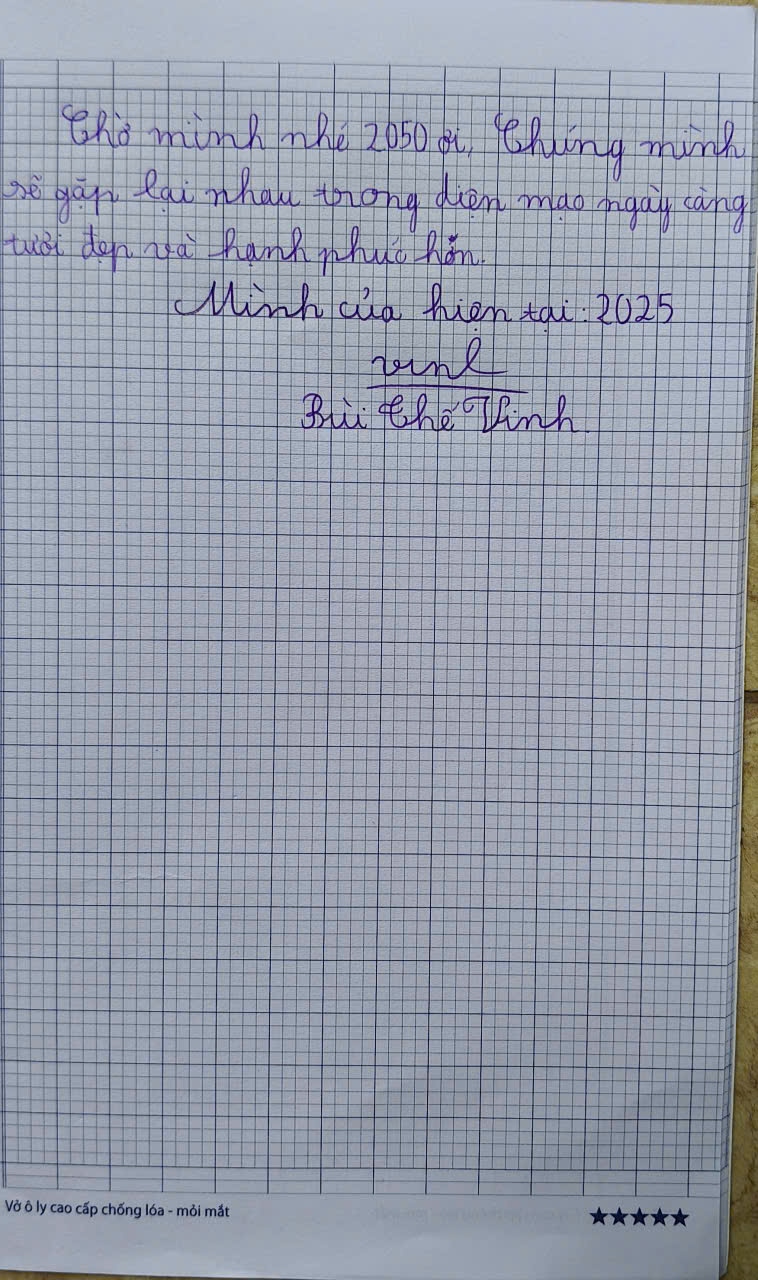 Chờ mình nhé 2050 ơi, Chúng mình
sẽ gặp lại nhau trong diện mạo ngày càng
tươi đẹp và hạnh phúc hơn.
Mình của hiện tại: 2025
vinh
Bùi Thế Vinh
Vở ô ly cao cấp chống lóa - mỏi mắt
★★★★★